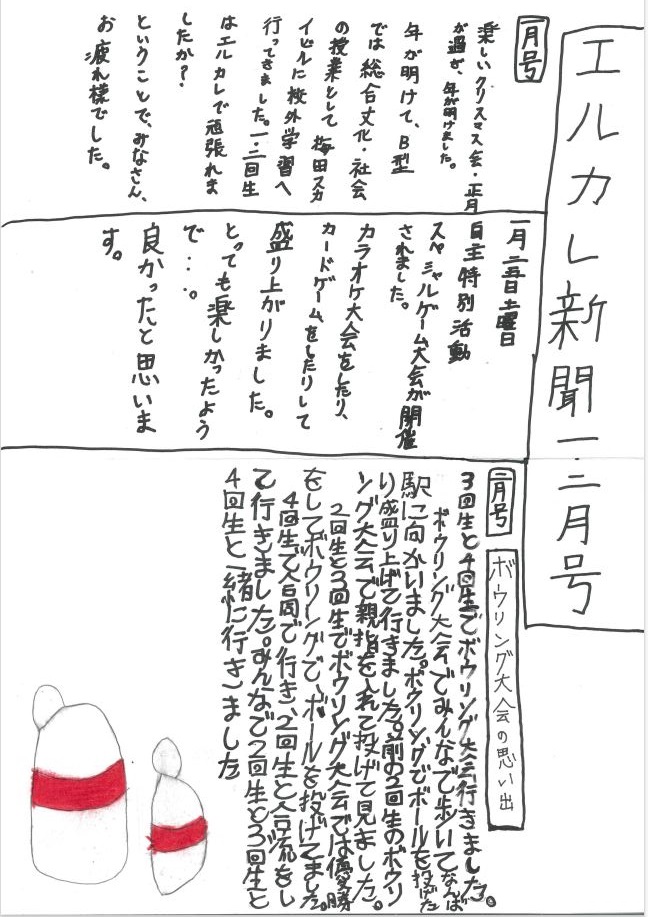 エルカレ新聞一・二月号
一月号
楽しいクリスマス会・正月
が過ぎ、年が明けました。
年が明けて、B型
では総合文化・社会
の授業として梅田スカ
イビルに校外学習へ
行ってきました。一・三回生
はエルカレで頑張れま
したか?
ということで、みなさん、
お疲れ様でした。
一月二五日土曜日
自主特別活動
スペシャルゲーム大会が開催
されました。
カラオケ大会をしたり、
カードゲームをしたりして
盛り上がりました。
とっても楽しかったよう
で…。
良かったと思いま
す。
二月号
ボウリング大会の思い出
3回生と4回生でボウリング大会行きました。
ボウリング大会でみんなで歩いてなんば
駅に向かいました。ボウリングでボールを投げた
り盛り上げて行きました。前の2回生のボウリ
ング大会で親指を入れて投げて見ました。
2回生と3回生でボウリング大会では優勝
をしてボウリングで、ボールを投げてました。
4回生で合同で行き、2回生と合流をし
て行きました。みんなで2回生と3回生と
4回生と一緒に行きました